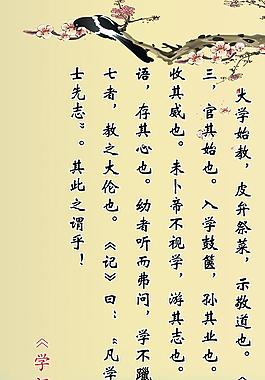 大学始教，皮弁祭菜，示敬道也。《
三，官其始也。入学鼓箧，孙其业也。
收其威也。未卜帝不视学，游其志也。
语，存其心也。幼者听而弗问，学不躐
七者，教之大伦也。《记》曰：“凡学
士先志”。其此之谓乎！
《学